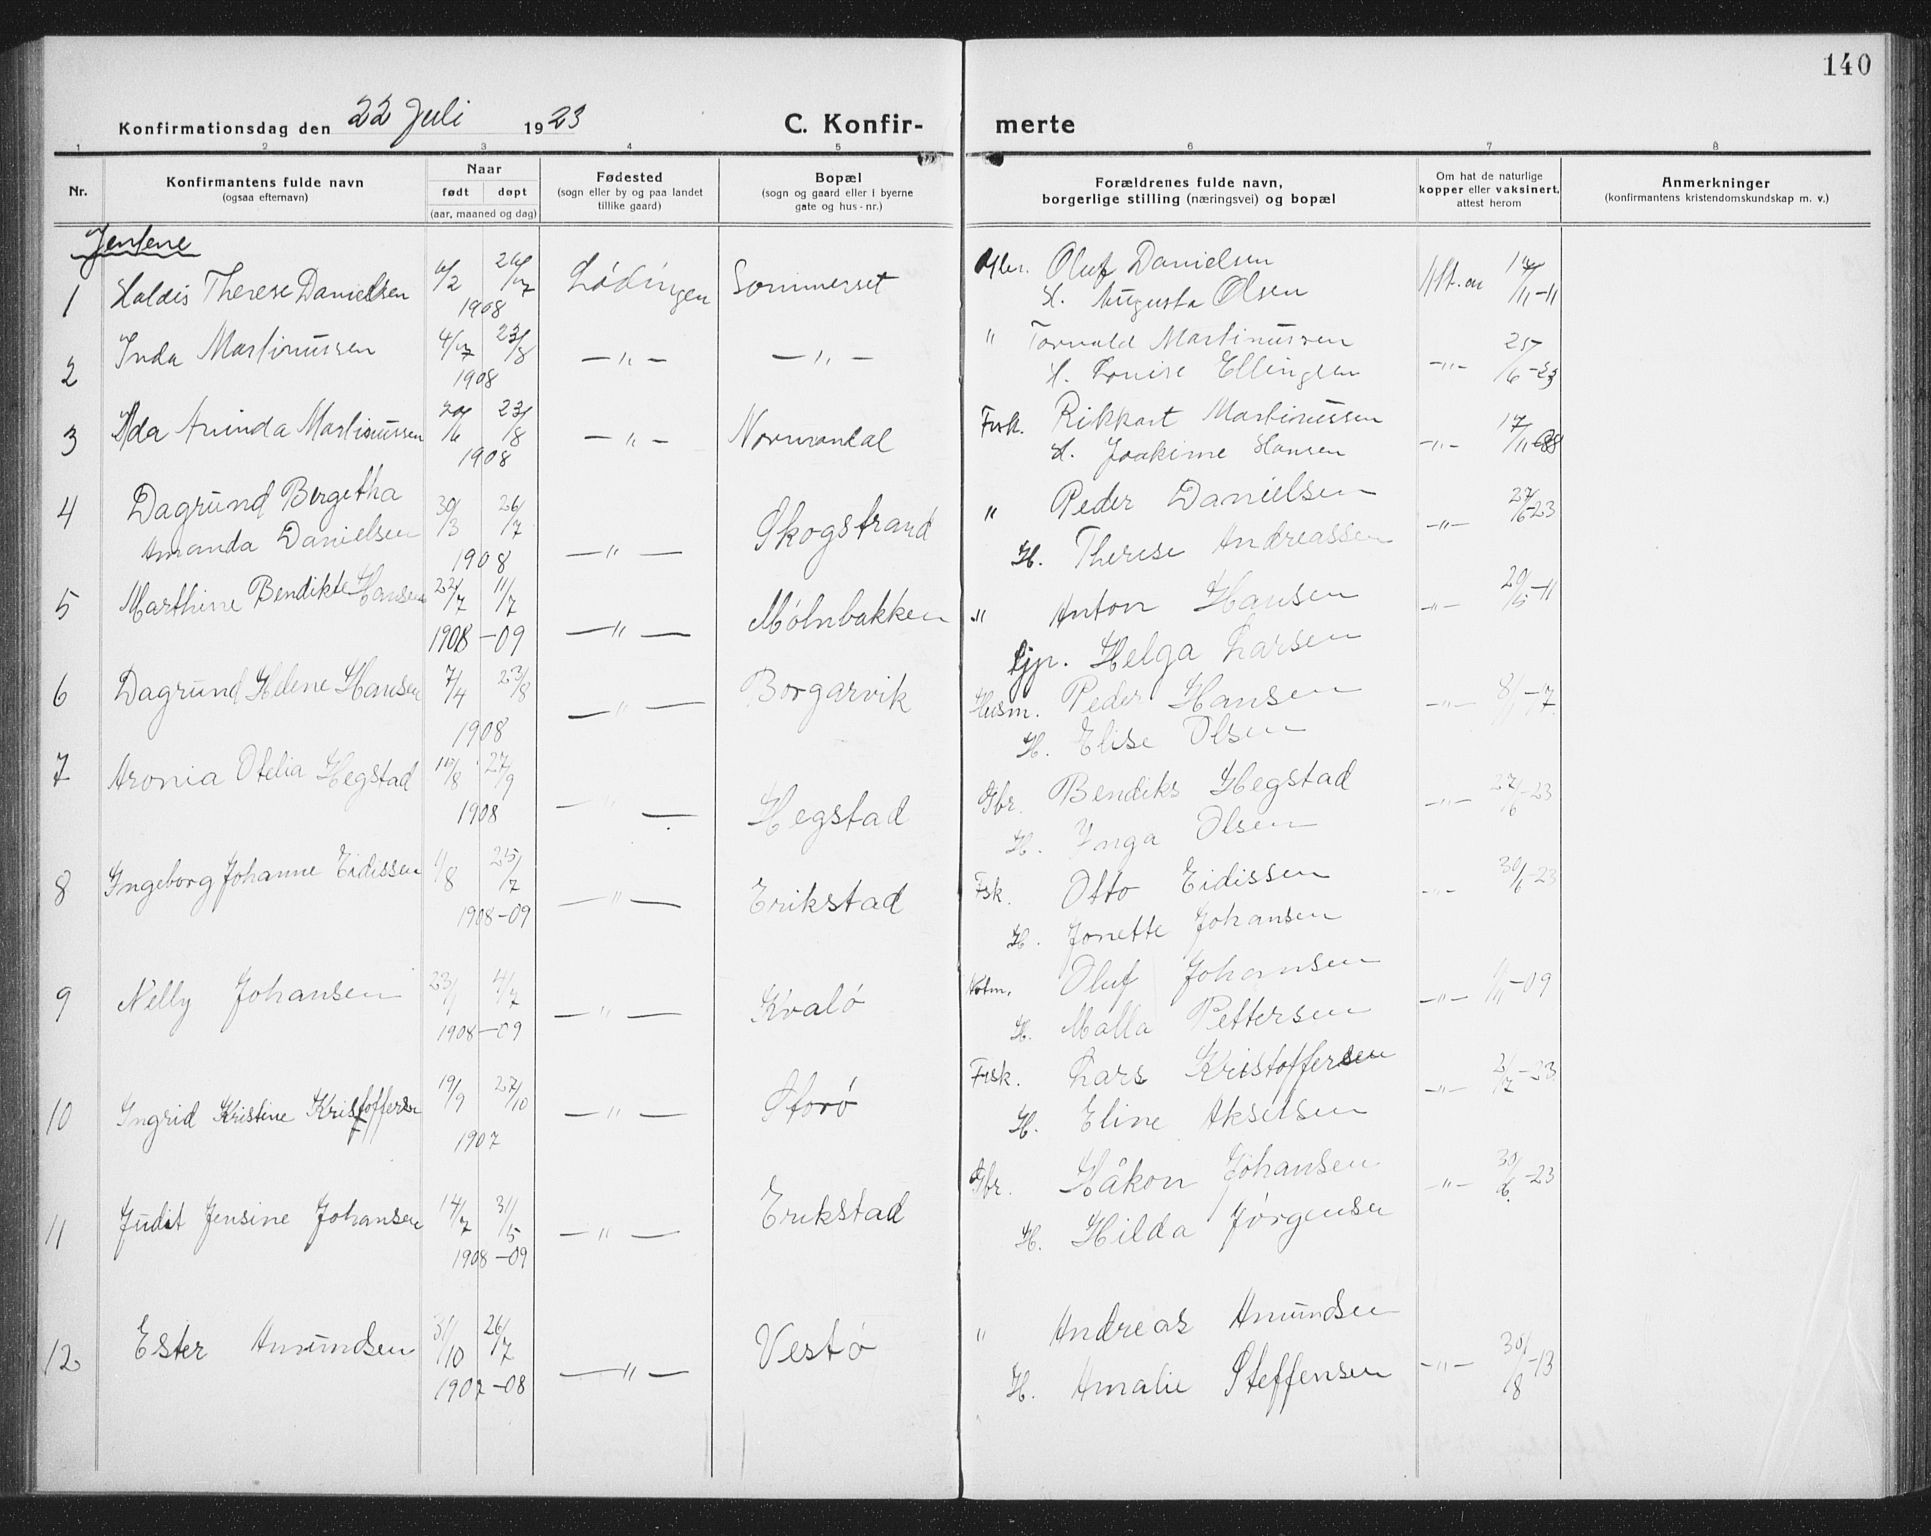 140
Konfirmationsdag den 22 Juli 1923
C. Konfir- merte
1 2 3 4 5 6 7 8
Nr.
Konfirmantens fulde navn
(ogsaa efternavn)
Naar
født døpt
(aar, maaned og dag)
Fødested
(sogn eller by og paa landet
tillike gaard)
Bopæl
(sogn og gaard eller i byerne
gate og hus-nr.)
Forældrenes fulde navn,
borgerlige stilling (næringsvei) og bopæl
Om hat de naturlige
kopper eller vaksinert,
attest herom
Anmerkninger
(konfirmantens kristendomskundskap m. v.)
Jentene
1 Haldis Therese Danielsen 1908 Lødingen Sommerset Oluf Danielsen
H. Augusta Olsen
2 Inda Martinussen 23/8 1908 —〃— —〃— 〃 Torvald Martinussen —〃— 25/6-23
H. Louise Ellingsen
3 Ada Aninda Martinussen 23/8 1908 —〃— Normandal Fisk. Rikkart Martinussen —〃—
H. Joakime Hansen
4 Dagrund Bergetha
Amanda Danielsen 30/3 26/7 1908 —〃— Skogstrand 〃 Peder Danielsen —〃— 27/6-23
H. Therese Andreassen
5 Marthine Bendikte Hansen 22/7 11/7 1908-09 —〃— Mølnbakken 〃 Anton Hansen —〃— 20/5-11
Gjp. Helga Larsen
6 Dagrund Helene Hansen 7/4 23/8 1908 —〃— Borgarvik Husm. Peder Hansen —〃—
H. Elise Olsen
7 Aronia Otelia Hegstad 27/9 1908 —〃— Hegstad Gbr. Bendiks Hegstad —〃— 27/6-23
H. Ynga Olsen
8 Ingeborg Johanne Eidissen 1/8 25/7 1908-09 —〃— Erikstad Fsk. Otto Eidissen —〃— 30/6-23
H. Jonette Johansen
9 Nelly Johansen 23/1 4/7 1908-09 —〃— Kvalø Oluf Johansen —〃— 1/11-09
H. Malla Pettersen
10 Ingrid Kristine Kristoffersen 19/9 27/10 1907 —〃— Storø Fisk. Lars Kristoffersen —〃— 2/7-23
H. Eline Akselsen
11 Judit Jensine Johansen 14/7 31/5 1908-09 —〃— Erikstad Gbr. Håkon Johansen —〃— 30/6-23
H. Hilda Jørgensen
12 Ester Amundsen 31/10 26/7 1907-08 —〃— Vestø 〃 Andreas Amundsen
H. Amalie Steffensen —〃— 30/8-13